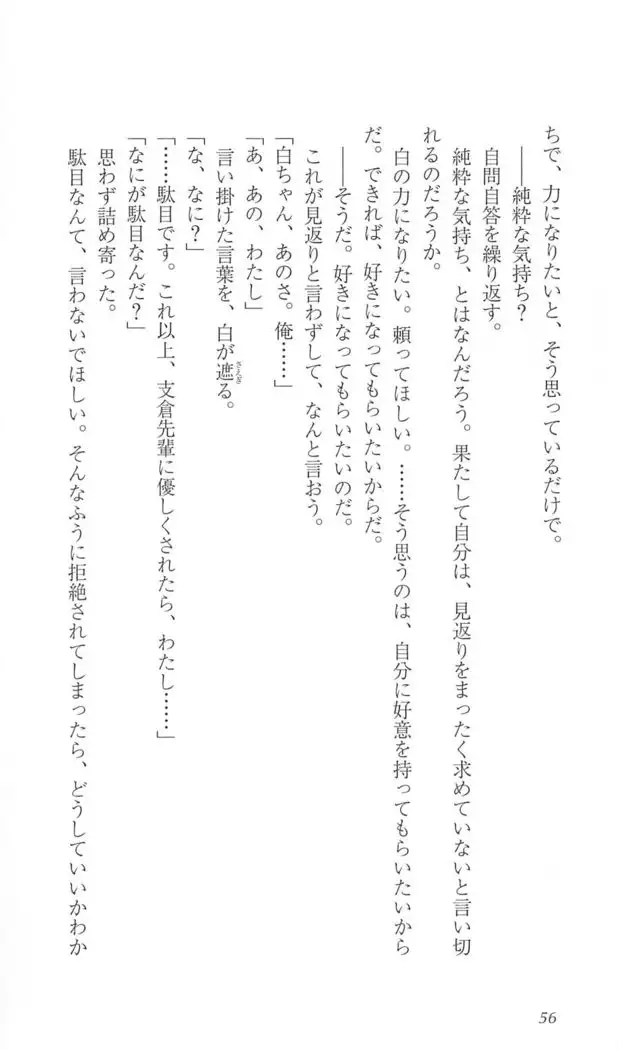 ちで、力になりたいと、そう思っているだけで。
――純粋な気持ち？
自問自答を繰り返す。
純粋な気持ち、とはなんだろう。果たして自分は、見返りをまったく求めていないと言い切
れるのだろうか。
白の力になりたい。頼ってほしい。……そう思うのは、自分に好意を持ってもらいたいから
だ。できれば、好きになってもらいたいからだ。
――そうだ。好きになってもらいたいのだ。
これが見返りと言わずして、なんと言おう。
「白ちゃん、あのさ。俺……」
「あ、あの、わたし」
言い掛けた言葉を、白が遮る。
さえぎ
「な、なに？」
「……駄目です。これ以上、支倉先輩に優しくされたら、わたし……」
「なにが駄目なんだ？」
思わず詰め寄った。
駄目なんて、言わないでほしい。そんなふうに拒絶されてしまったら、どうしていいかわか
56